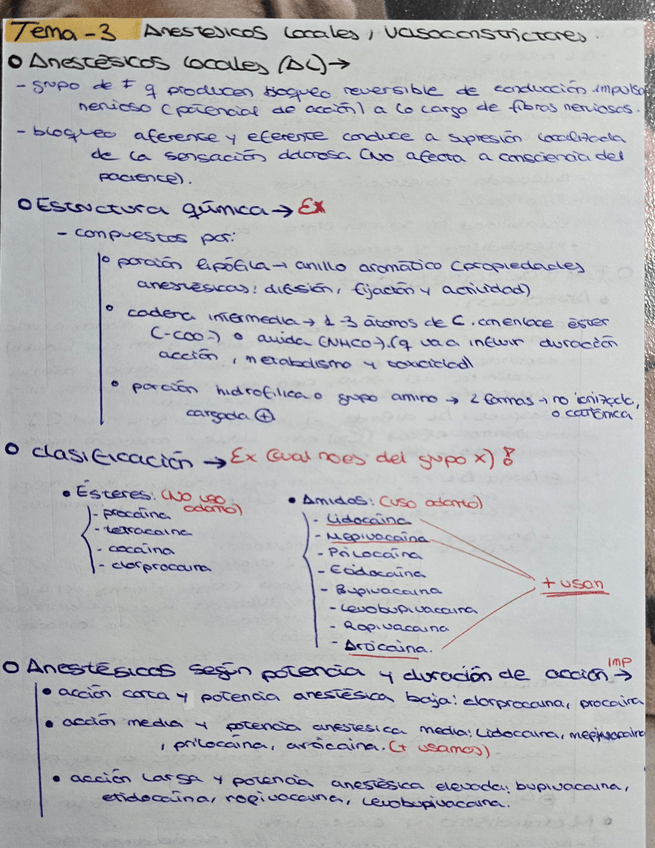 Tema-3 Anestésicos locales, vasoconstrictores.
Anestésicos locales (AL)→
- grupo de ≠ q producen bloqueo reversible de conducción impulso
nervioso (potencial de acción) a lo largo de fibras nerviosas.
- bloqueo aferente y eferente conduce a supresión localizada
de la sensación dolorosa (no afecta a consciencia del
paciente).
Estructura química → Ex
- compuestos por:
porción lipófila → anillo aromático (propiedades
anestésicas: difusión, fijación y actividad)
cadena intermedia → 1-3 átomos de C. con enlace éster
(-COO-) o amida (NHCO-). (q va a influir duración
acción, metabolismo y toxicidad)
porción hidrofílica o grupo amino → 2 formas → no ionizada,
cargada ⊕ o catiónica
clasificación → Ex (cual no es del grupo x)!
Ésteres: (NO USO
odonto)
- procaína
- tetracaína
- cocaína
- clorprocaína
Amidas: (uso odonto)
- Lidocaína
- Mepivacaína
- Prilocaína
- Etidocaína
- Bupivacaína
- Levobupivacaína
- Ropivacaína
- Articaína.
+ usan
Anestésicos según potencia y duración de acción → IMP
acción corta y potencia anestésica baja: clorprocaína, procaína
acción media y potencia anestésica media: Lidocaína, mepivacaína
, prilocaína, articaína. (+ usamos)
acción larga y potencia anestésica elevada: bupivacaína,
etidocaína, ropivacaína, levobupivacaína.